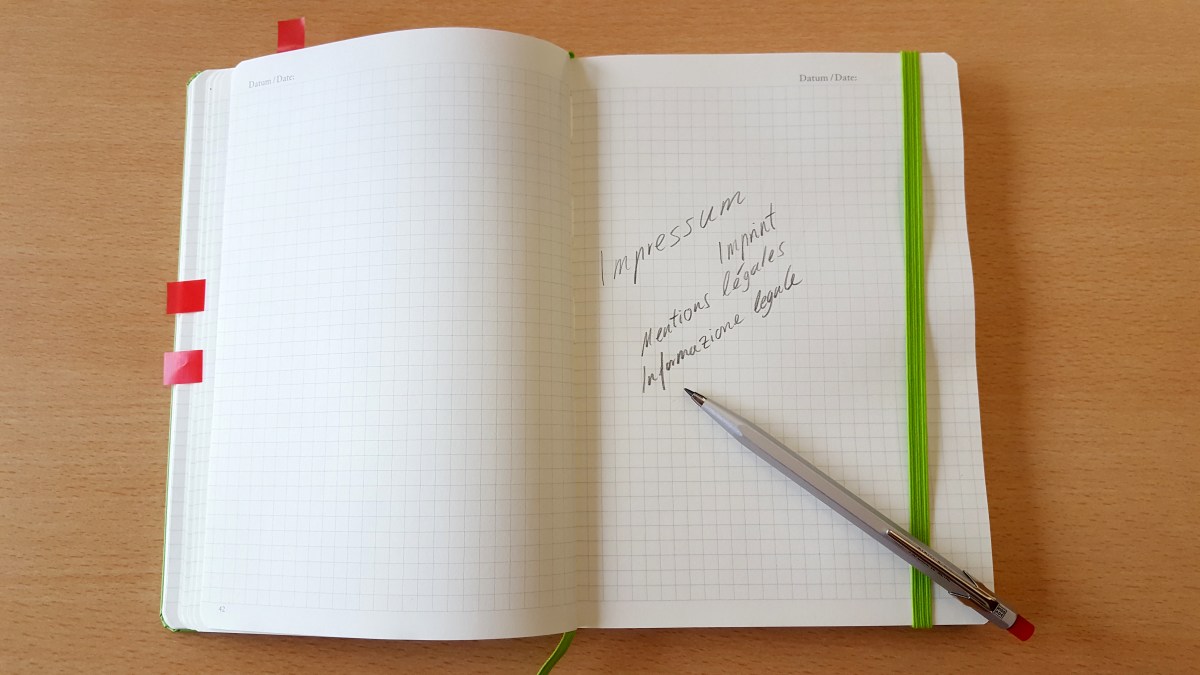 Datum / Date:
Datum / Date:
Impressum
Imprint
Mentions légales
Informazione legale
42